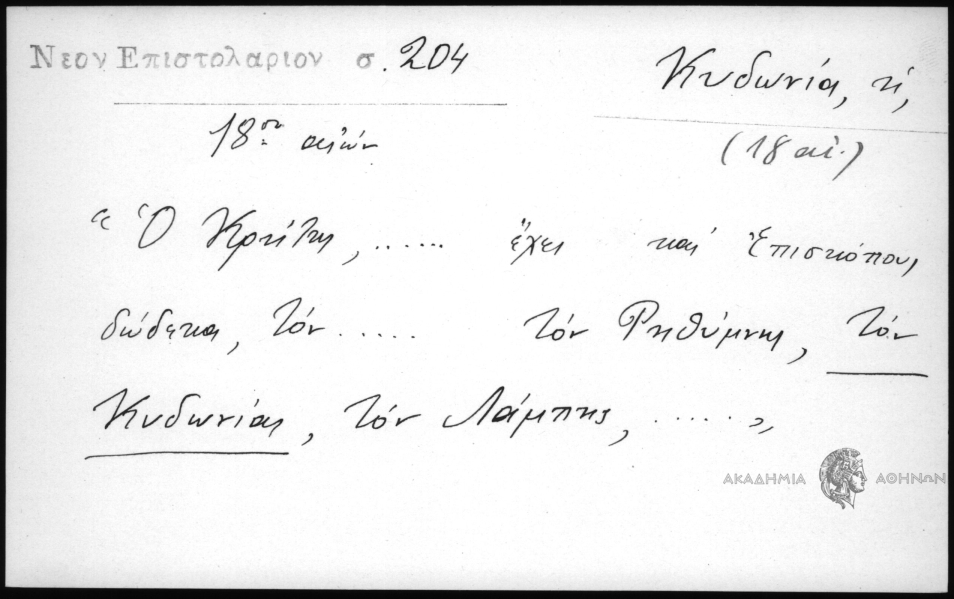 Νεον Επιστολαριον σ. 204
Κυδωνία, ἡ,
18ου αἰών
(18 αἰ.)
“Ὁ Κρήτης, ...... ἔχει καί Ἐπισκόπους
δώδεκα, τόν ..... τόν Ρηθύμνης, τόν
Κυδωνίας, τόν Λάμπης, ..... „
ΑΚΑΔΗΜΙΑ ΑΘΗΝΩΝ